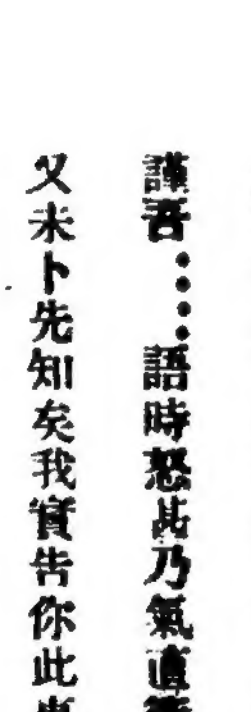 謹吾‥‥語時怒甚乃氣直
又未卜先知矣我實告你此